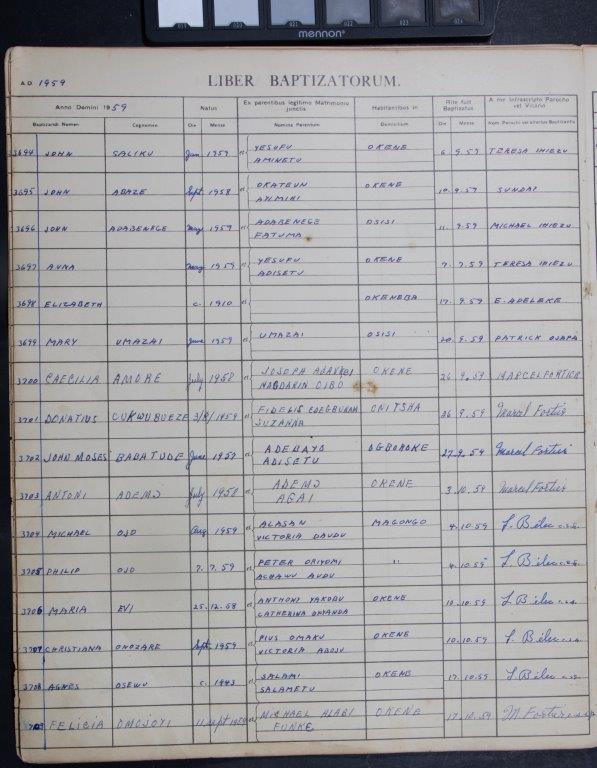 021 022 023 024
mennon
A.D. 1959 LIBER BAPTIZATORUM.
Anno Domini 1959 Natus Ex parentibus legitimo Matrimonio junctis Habitantibus in Rite fuit Baptizatus A me infrascripto Parocho vel Vicario
Baptizandi Nomen Cognomen Die Mense Nomina Parentum Domicilium Die Mense Nom. Parochi vel alterius Baptizantis
3694 JOHN SALIKU Jan 1959 et YESUFU OKENE 6 9.59 TERESA IHIEZU
AMINETU
3695 JOHN ABAZE Sept. 1958 et OKATEUN OKENE 10.9.59 SUNDAI
AYIMINI
3696 JOHN ADABENEGE May 1959 et ADABENEGE OSISI 11. 9.59 MICHAEL IHIEZU
FATUMA
3697 ANNA May 1959 et YESUFU OKENE 7. 7.59 TERESA IHIEZU
ADISETU
3698 ELIZABETH c. 1910 et OKENEBA 17. 9.59 E. ADELEKE
3699 MARY UMAZAI June 1959 et UMAZAI OSISI 20. 9.59 PATRICK OJAPA
3700 CAECILIA AMORE July 1958 et JOSEPH OKENE 26 9.59 MARCEL FORTIER
CIBO
3701 DONATIUS CUKWUBUEZE 3/8/1959 et FIDELIS ONITSHA 26 9.59 Marcel Fortier
SUZANNA
3702 JOHN MOSES BABATUDE June 1959 et ADEBAYO OGBOROKE 27.9.59 Marcel Fortier
ADISETU
3703 ANTONI ADEMO July 1958 et ADEMO OKENE 3.10.59 Marcel Fortier
AGAI
3704 MICHAEL OJO Aug 1959 et ALASAN MAGONGO 4.10.59 L. Bélec
VICTORIA DAUDU
3705 PHILIP OJO 7.7.59 et PETER ORIYOMI " 4.10.59 L. Bélec
AUDU
3706 MARIA EVI 25.12.58 et ANTHONY YAKOBU OKENE 10.10.59 L. Bélec
CATHERINA OHYANDA
3707 CHRISTIANA ONOZARE Sept. 1959 et PIUS OMAKU OKENE 10.10.59 L. Bélec
VICTORIA ABOSU
3708 AGNES OSEWU c. 1943 et SALAMI OKENE 17.10.59 L. Bélec
SALAMETU
FELICIA OMOJOYI 11 Sept 1959 et MICHAEL OKENE 17.10.59 M. Fortier
FUNKE